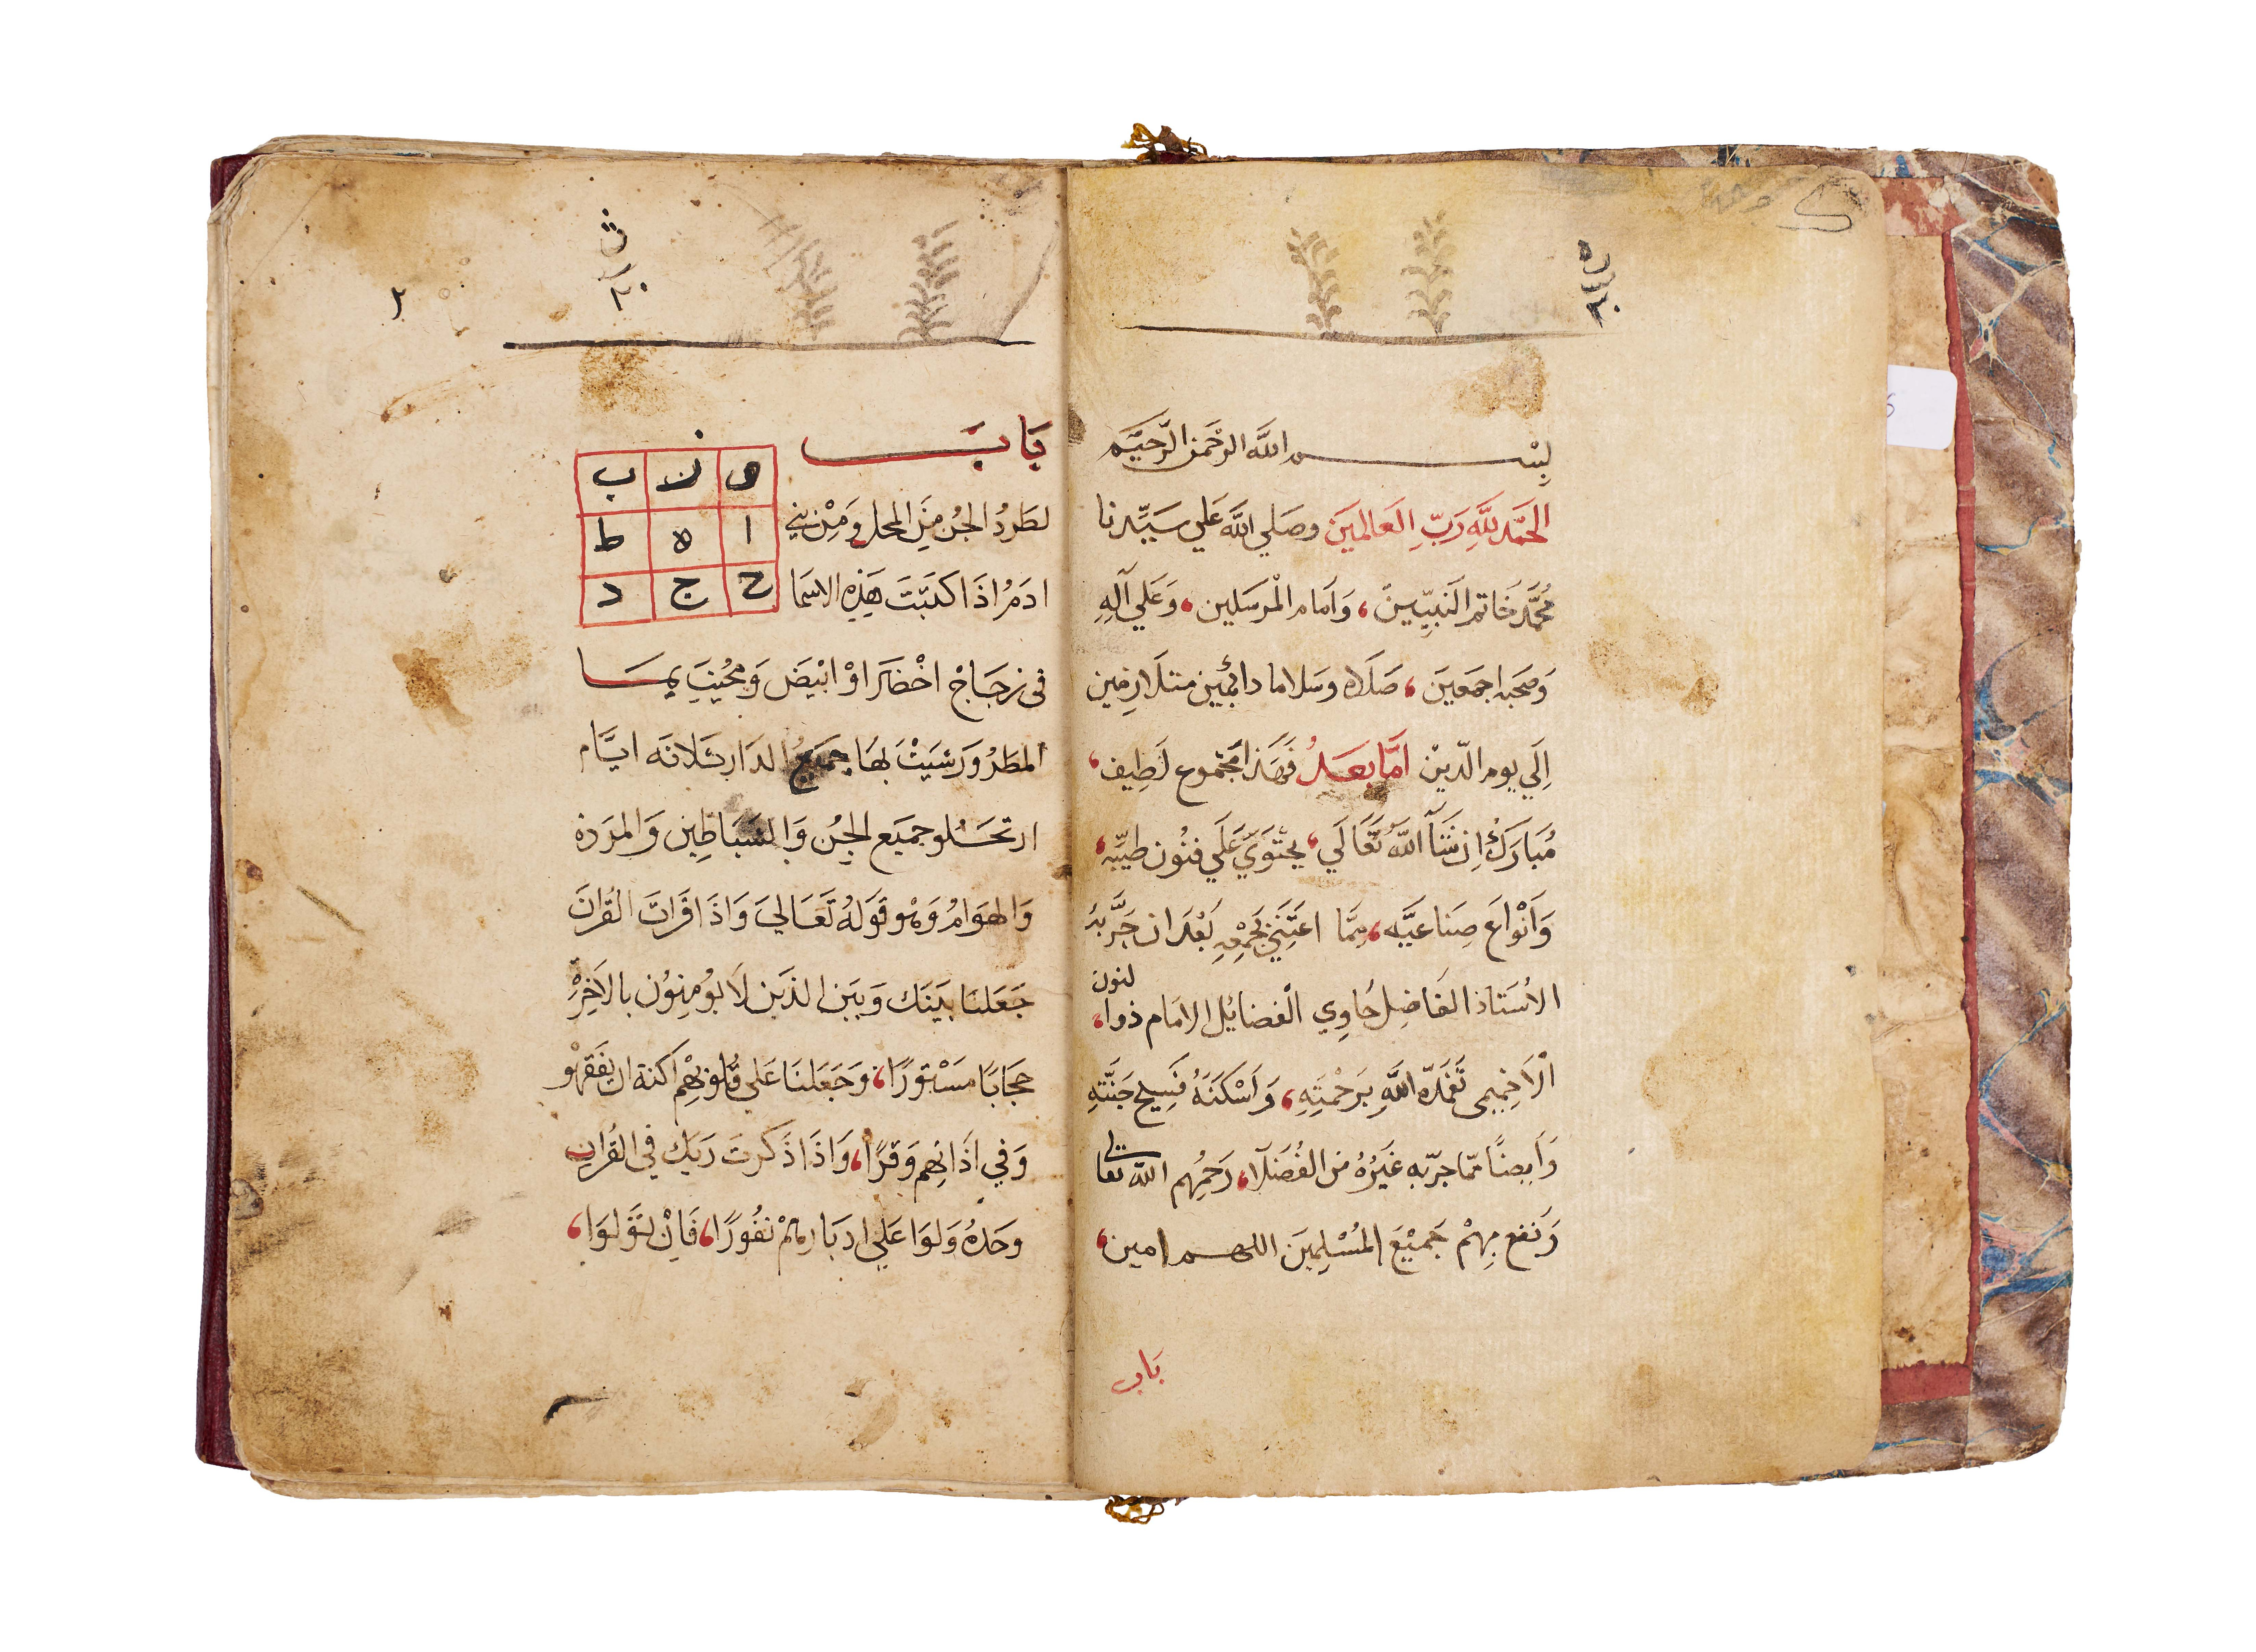 بِسْم الله الرحمن الرّحيم
الحمد للهِ رَبِّ العَالمينَ وصَلي الله عَلي سَيِّدنا
مُحمَّد خَاتم النَبيّينَ، وَامام المْرسَلين، وَعَلي آلِهِ
وَصَحبه اجمَعينَ، صَلَاه وسَلاما دائمين متلَازمين
اِلَي يوم الدّينْ امَّا بَعَدُ فَهَذا مجَموع لَطِيف،
مُبَارَكْ اِن شَآ اللَّهُ تَعَالَي، يحْتَوِي عَلَي فنُون طبيّه،
وَاَنْوَاع صِناعيَّه، ممَّا اعتَنَي بجَمْعِهِ بَعْدَ ان جَرَّبَهُ
لنون
الاُستَاذ الفَاضِل حَاوِي الْفضائِل الامَام ذوا،
الْاَخِميمي تَغَمَدّه اللَّهِ بَرَحْمَتِهِ، وَاَسْكَنَهُ فَسِيح جَنَّتِهِ
وَاَيضًا ممّا جرّبه غَيْرُهُ من الفُضَلَآ، رَحمُهم الله تعالي
وَنفع بِهمْ جَميْعَ المُسْلِمينَ اللهم امين،
بَاب
٢
بَابَ
و ن ب
ا ه ط
ح ج د
لطَردُ الجُن مِنَ المحل وَمِنْ بني
ادَمُ اذَا كتَبَتَ هَذِهِ الاسَمَا
في زجَاجْ اخْضَر اوْ ابْيَضَ وَمحُيَتِ بمَا
المطَرُ وَرشيَتْ بهَا جَميَعُ الدَار ثَلاثه ايَّام
ارتحَلُو جميَع الجُن وَالشيَاطِين وَالمَردَه
وَالهوَامُ وَهُو قَولهُ تَعَالي وَاذَا قَراتَ القُرانَ
جَعَلنَا بَيَنَك وَبَين الذَين لَا يُومِنُون بالاَخِرِهْ
حجَابًا مَسْتورًا، وَجَعَلنَا عَلي قُلوبهِمْ اَكنة ان يفَقهُو
وَفي اَذَانِهم وَقرًا، وَاذَا ذَكرتَ رَبَك في القُران
وحَدهُ وَلوَا عَلي ادبَارهمْ نفُورًا، فَاِنْ تَوَلوَا،